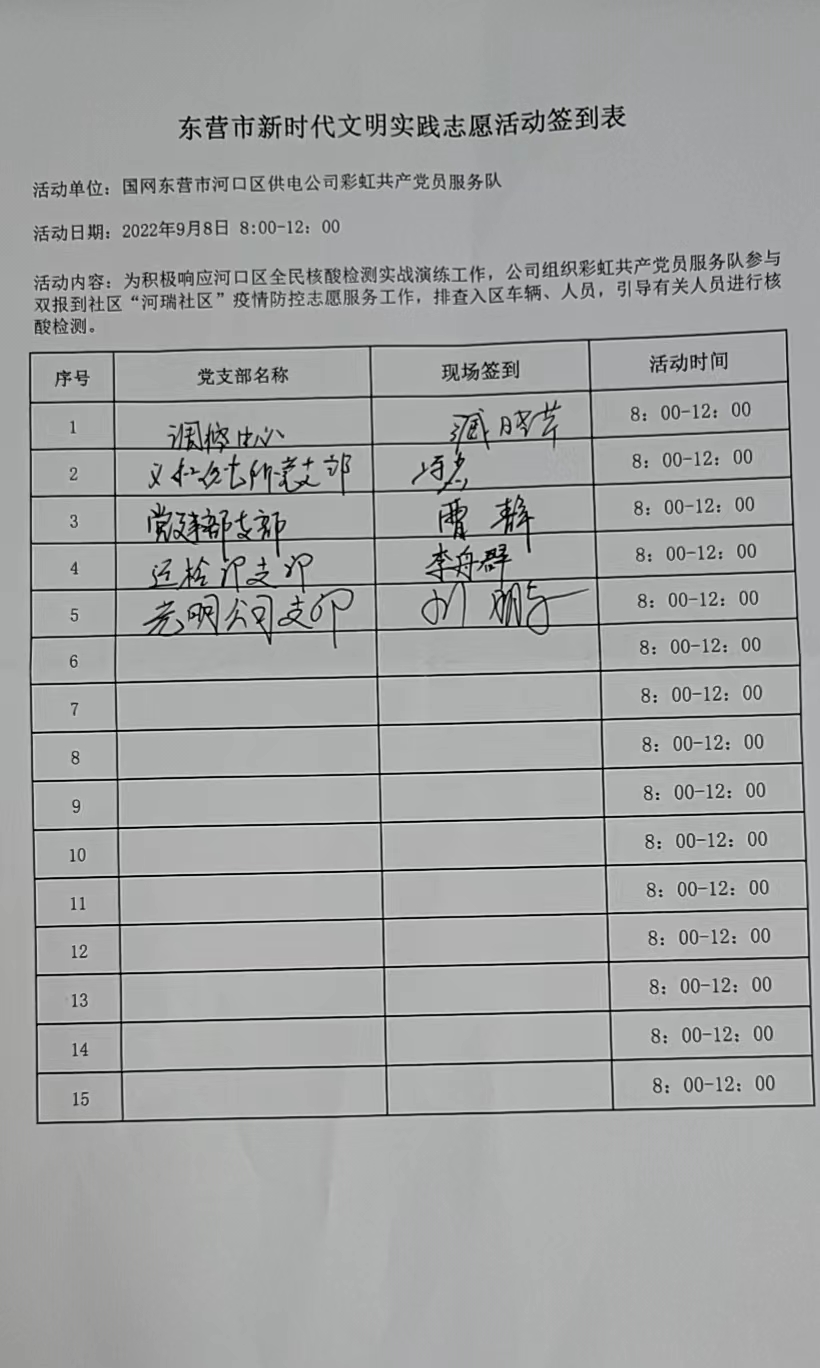 东营市新时代文明实践志愿活动签到表
活动单位：国网东营市河口区供电公司彩虹共产党员服务队
活动日期：2022年9月8日 8:00-12：00
活动内容：为积极响应河口区全民核酸检测实战演练工作，公司组织彩虹共产党员服务队参与
双报到社区“河瑞社区”疫情防控志愿服务工作，排查入区车辆、人员，引导有关人员进行核
酸检测。
序号 党支部名称 现场签到 活动时间
1 调控中心 8：00-12：00
2 义和供电所党支部 8：00-12：00
3 党建部支部 曹静 8：00-12：00
4 运检部支部 李舟群 8：00-12：00
5 光明公司支部 8：00-12：00
6 8：00-12：00
7 8：00-12：00
8 8：00-12：00
9 8：00-12：00
10 8：00-12：00
11 8：00-12：00
12 8：00-12：00
13 8：00-12：00
14 8：00-12：00
15 8：00-12：00